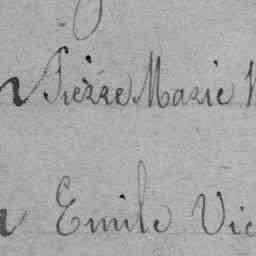 Pierre Marie
Emile Vic